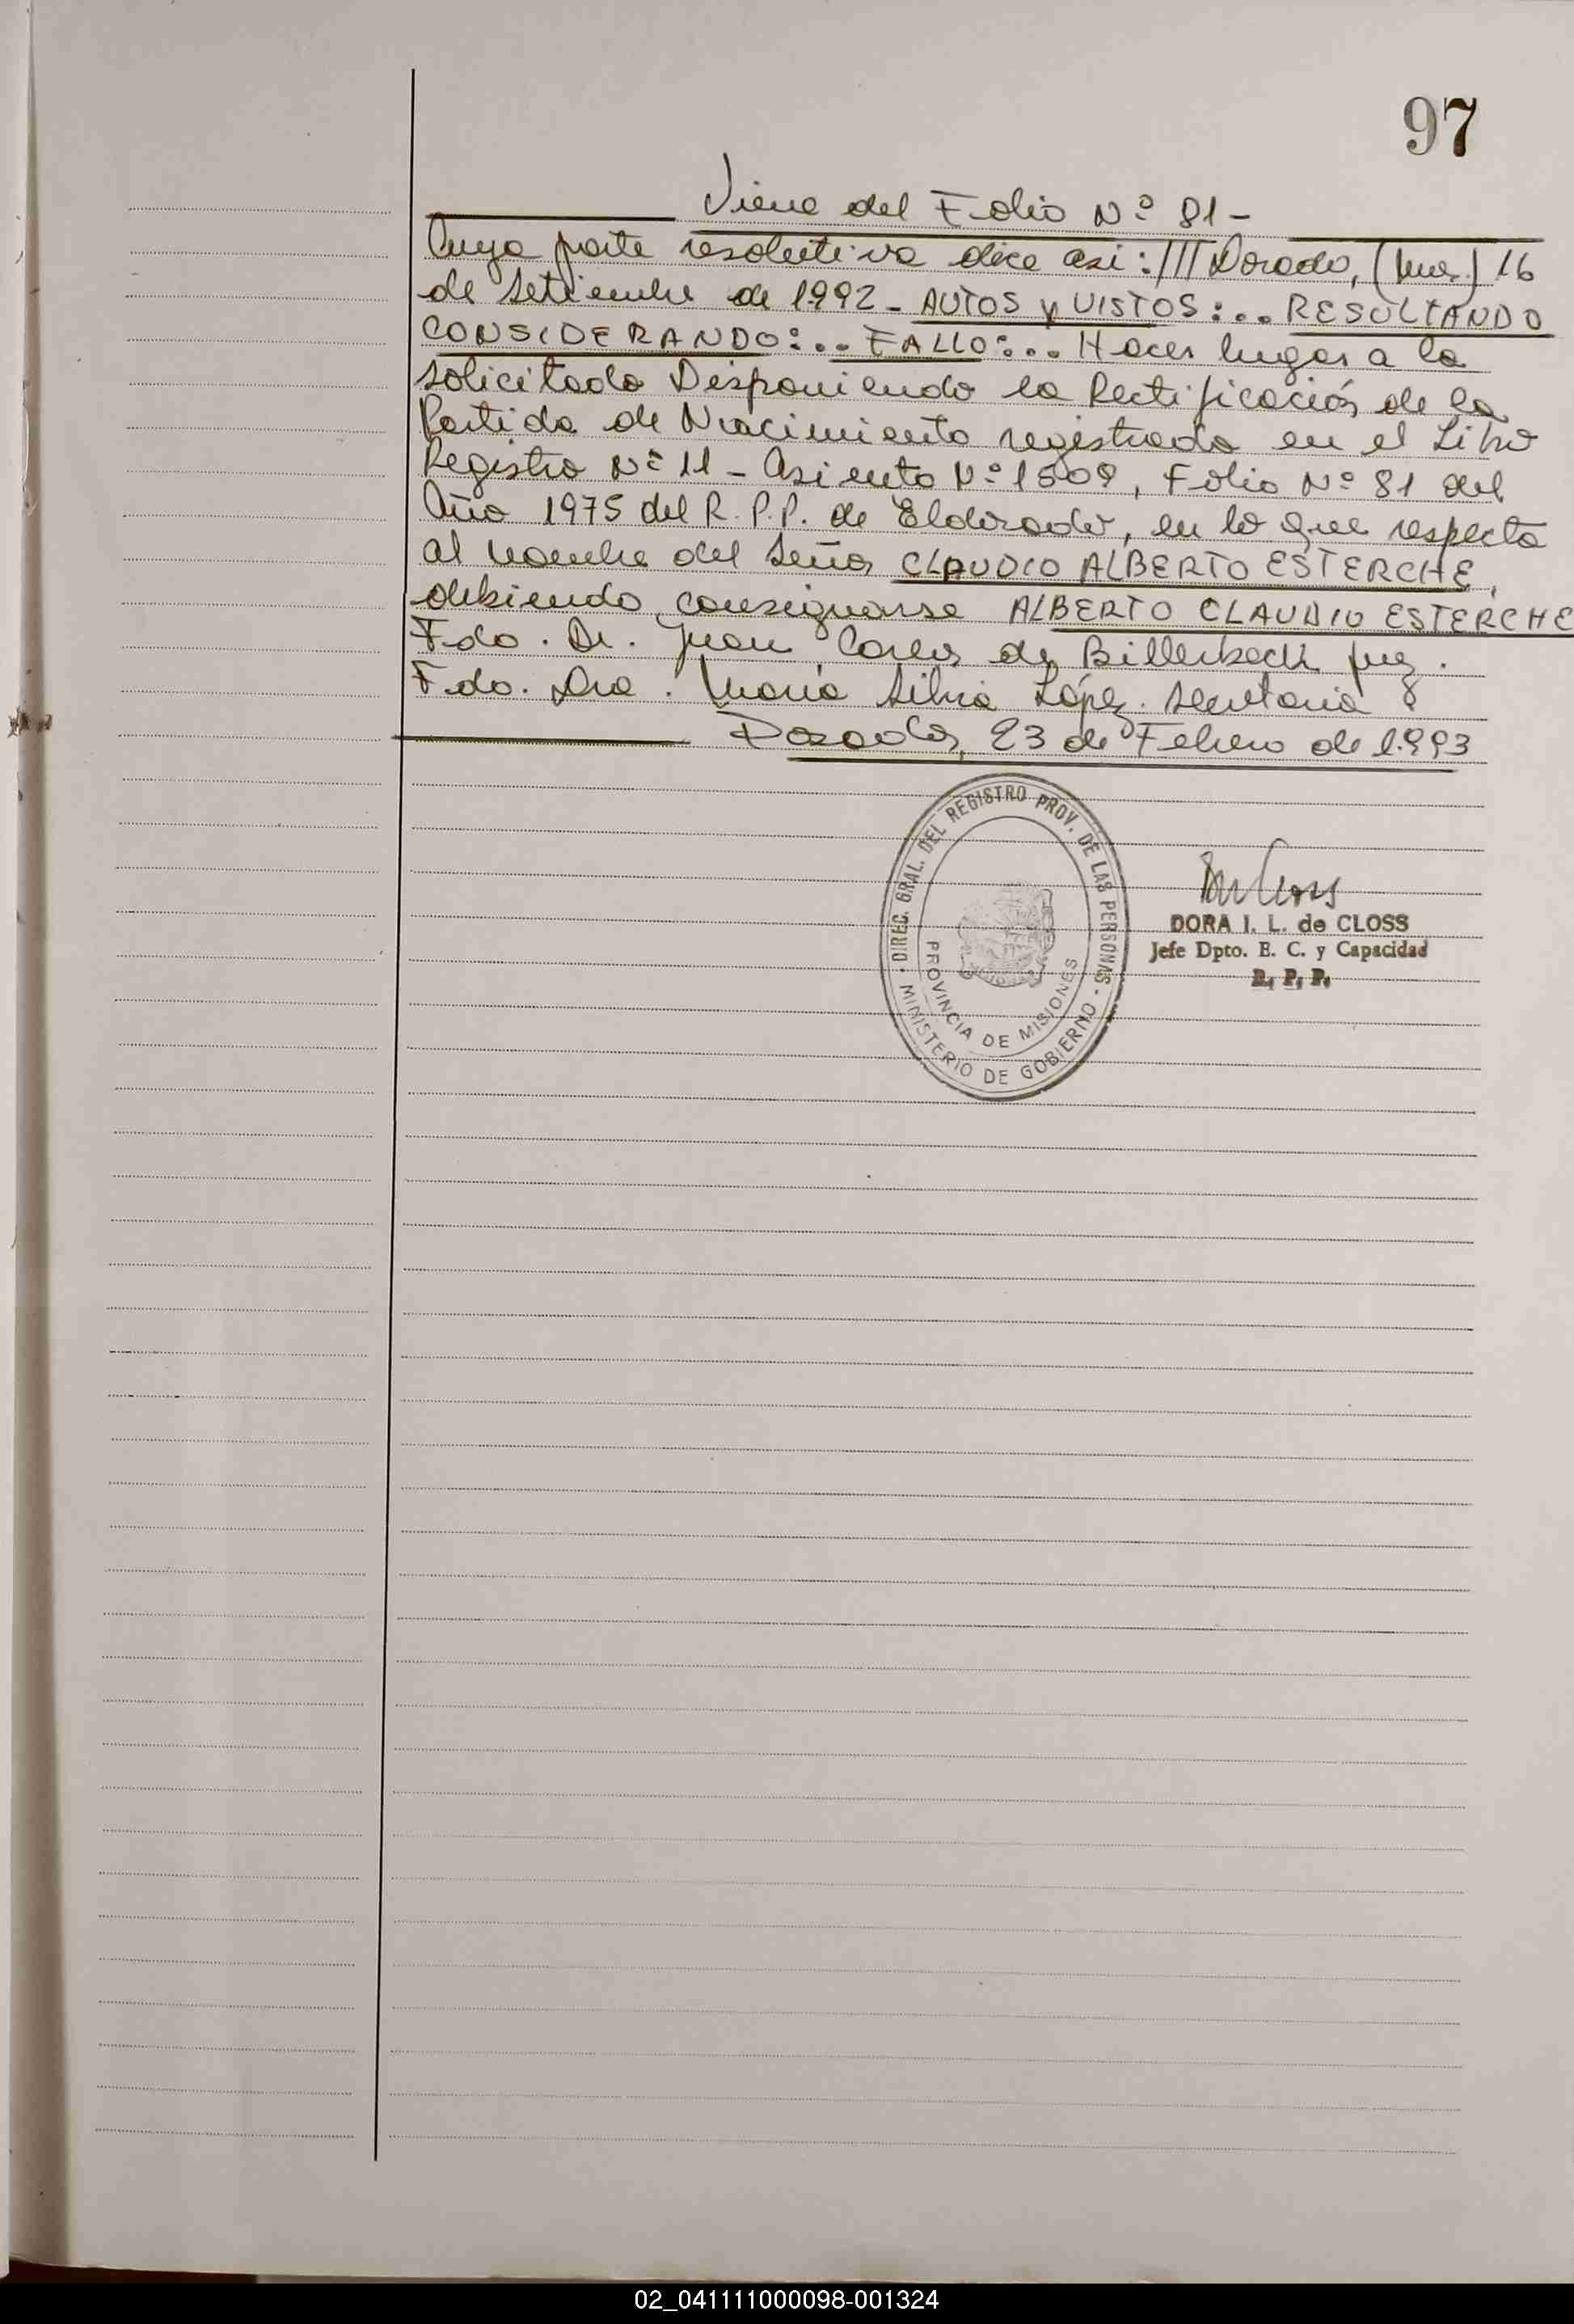 97
Viene del Folio Nº 81-
Cuya parte resolutiva dice asi: ///Dorado, (Mnes.) 16
de Setiembre de 1992 - AUTOS y VISTOS:... RESULTANDO
CONSIDERANDO:... FALLO:... Hacer lugar a lo
solicitado Disponiendo la Rectificación de la
Partida de Nacimiento registrada en el Libro
Registro Nº 11 - Asiento Nº 1509, Folio Nº 81 del
Año 1975 del R.P.P. de Eldorado, en lo que respecta
al nombre del Señor CLAUDIO ALBERTO ESTERCHE,
debiendo consignarse ALBERTO CLAUDIO ESTERCHE
Fdo. Dr. Juan Carlos de Billerbeck Juez.
Fdo. Dra. María Silvia López. Secretaria
Posadas, 23 de Febrero de 1.993
DIREC. GRAL. DEL REGISTRO PROV. DE LAS PERSONAS
PROVINCIA DE MISIONES
MINISTERIO DE GOBIERNO
DORA I. L. de CLOSS
Jefe Dpto. E. C. y Capacidad
R. P. P.
02_041111000098-001324